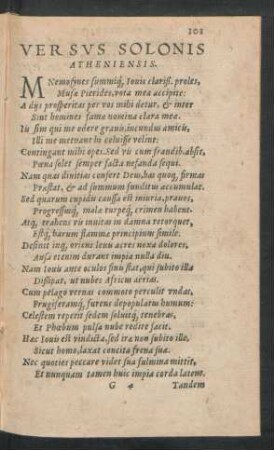 101
VERSVS SOLONIS
ATHENIENSIS.
MNemosynes summiq́, Iouis clariss. proles,
Musæ Pierides, vota mea accipite:
A dijs prosperitas per vos mihi detur, & inter
Sint homines fama nomina clara mea.
Iis sim qui me odere grauis, iucundus amicis,
Illi me metuant hi coluisse velint:
Contingant mihi opes. Sed vis cum fraudib. absit,
Pœna solet semper facta nefanda sequi.
Nam quas diuitias confert Deus, has quoq, firmas
Præstat, & ad summum funditus accumulat.
Sed quarum cupidis caussa est iniuria, prauus,
Progressusq́, mala turpeq́, crimen habent.
Atq, trahens vis inuitas in damna retorquet,
Estq́, harum flammæ principium simile.
Desinit inq, oriens leui acres noxa dolores,
Ausa etenim durant impia nulla diu.
Nam Iouis ante oculos finis stat, qui subito illa
Dissipat, ut nubes Africus aerias.
Cum pelago vernas commote perculit vndas,
Frugiferamq́, furens depopulatur humum:
Celestem repetit sedem soluitq́, tenebras,
Et Phœbum pulsa nube redire facit.
Hæc Iouis est vindicta, sed ira non subito ille,
Sicut homo, laxat concita frena sua.
Nec quoties peccare videt sua fulmina mittit,
Et nunquam tamen huic impia corda latent.
G 4 Tandem